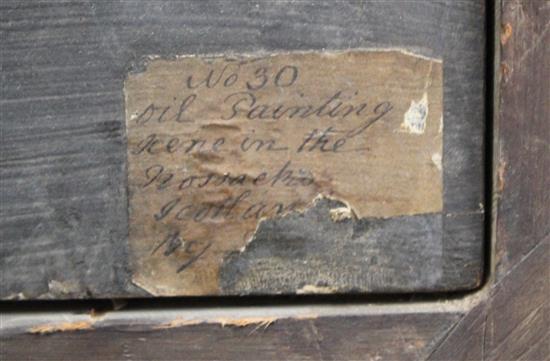 No 30
Oil Painting
Scene in the
Trossachs
Scotlan
by